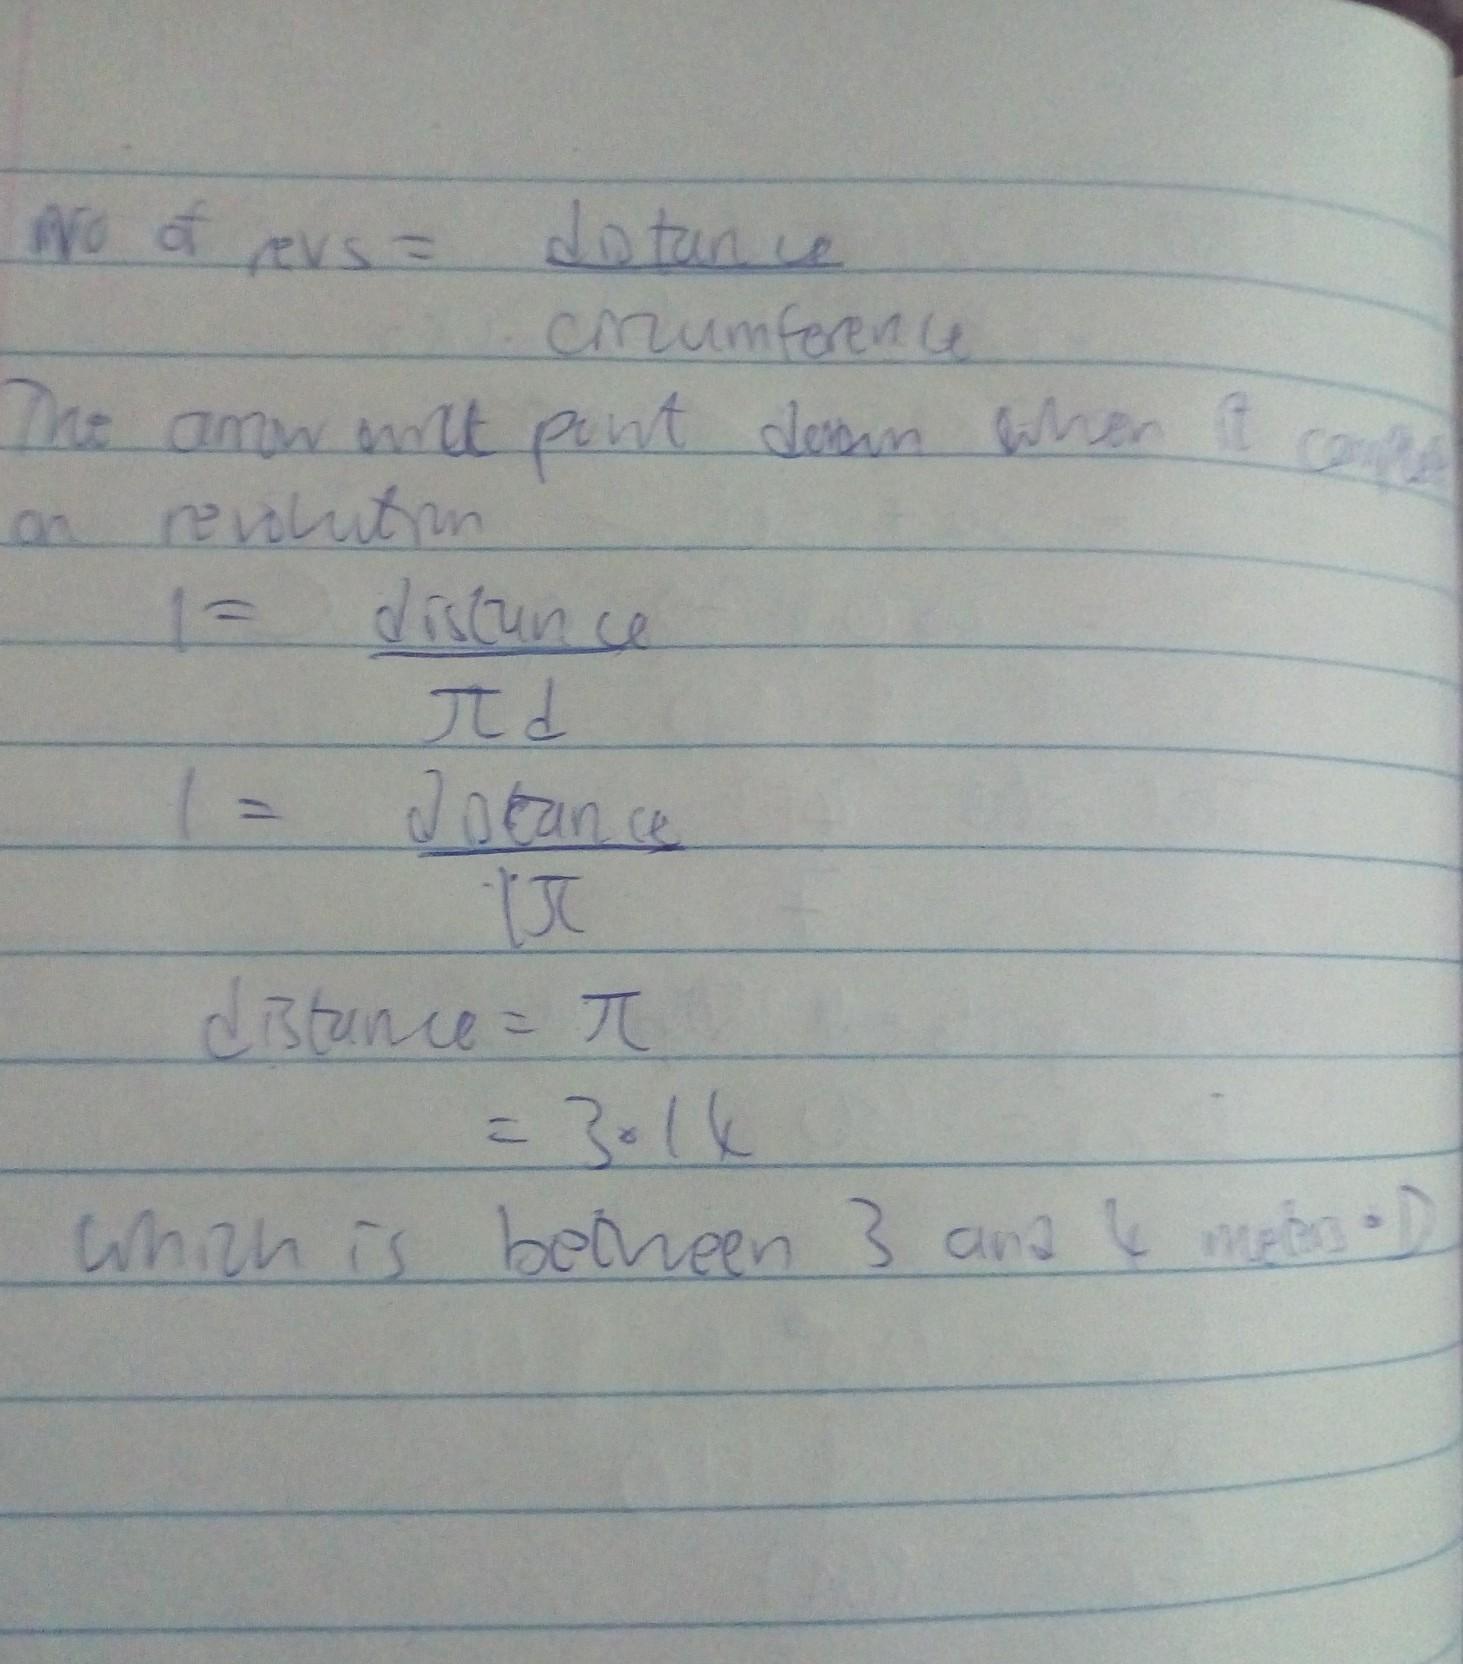 No of revs = distance
circumference
The arrow will point down when it
on revolution
1 = distance
πd
1 = distance
1π
distance = π
= 3.14
which is between 3 and 4 meters. D